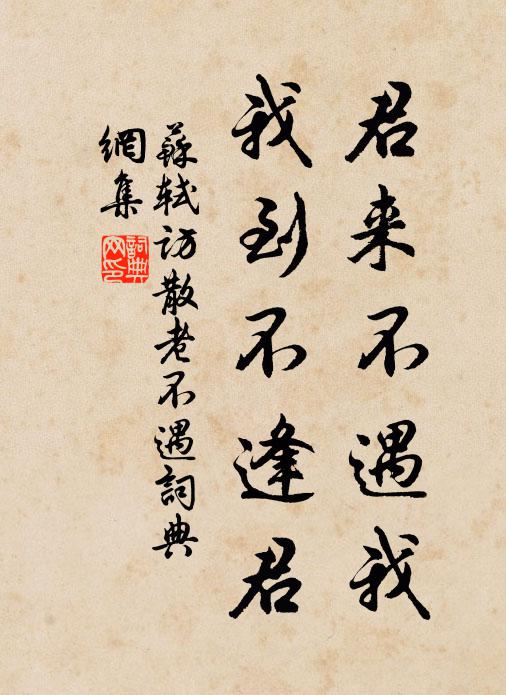 君来不遇我
我到不逢君
蘇軾访散老不遇詞典
網集
詞典网印